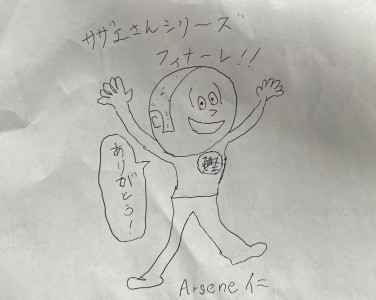 サザエさんシリーズ
フィナーレ!!
鰹
ありがとう!
Arsene 仁